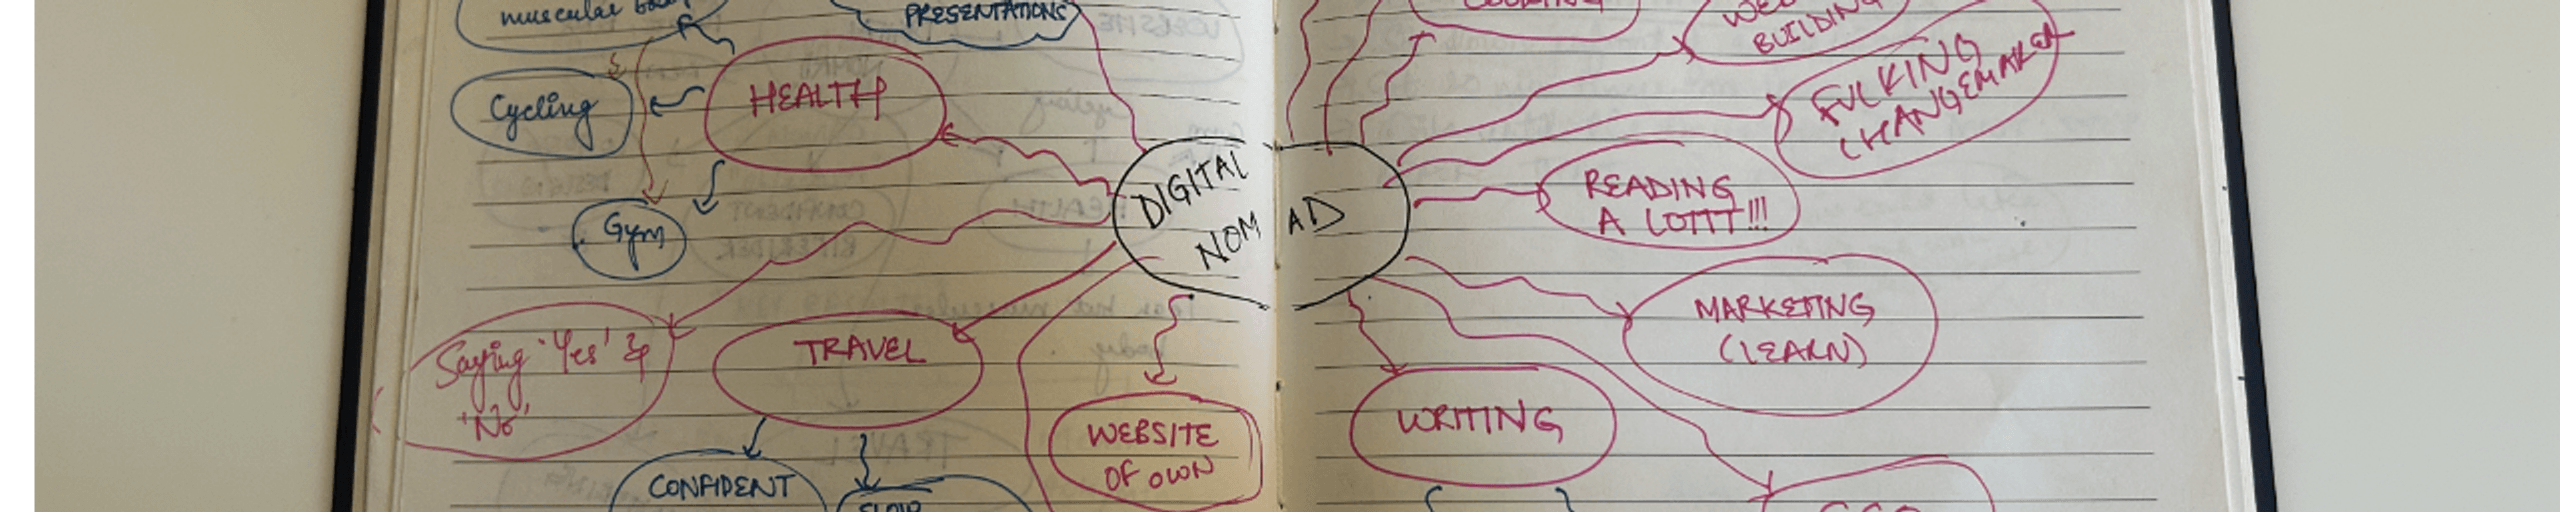 muscular body
PRESENTATIONS
Cycling
HEALTH
Gym
DIGITAL
NOMAD
BUILDING
FUCKING
CHANGEMAKER
READING
A LOTTT!!!
MARKETING
(LEARN)
Saying 'Yes' &
'No'
TRAVEL
WEBSITE
OF OWN
WRITING
CONFIDENT
SLOW